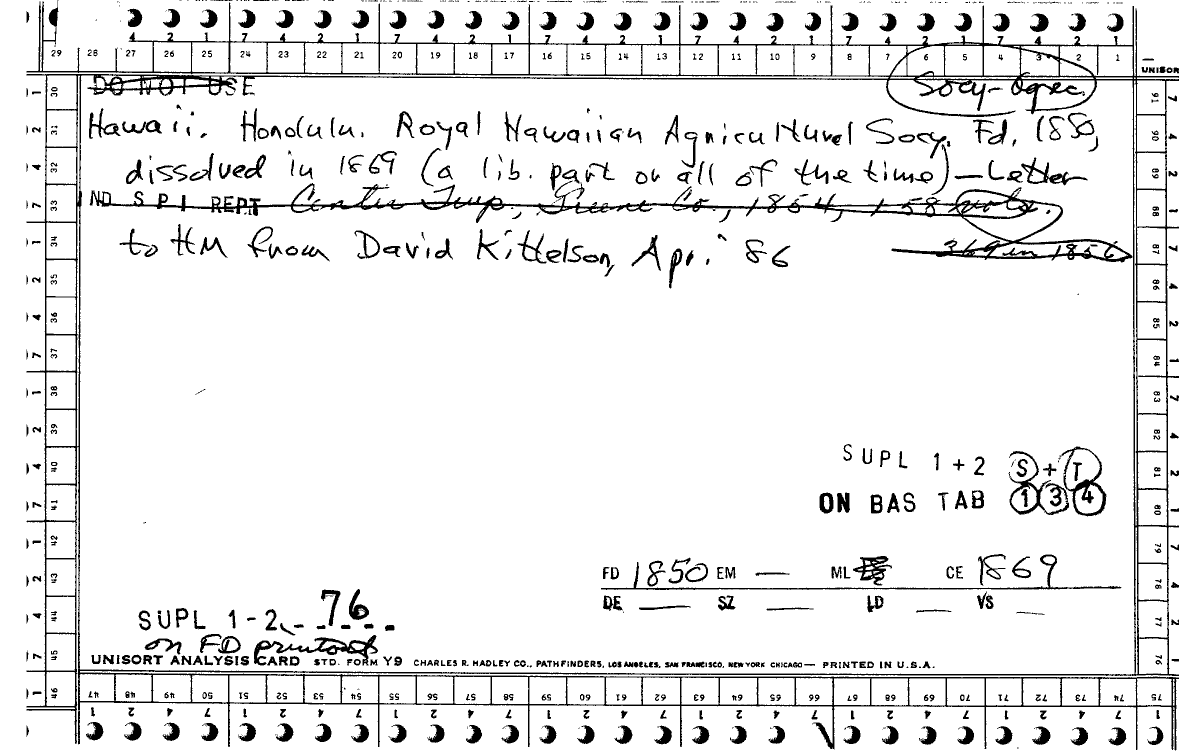 4 2 1 7 4 2 1 7 4 2 1 7 4 2 1 7 4 2 1 7 4 2 1 7 4 2 1
29 28 27 26 25 24 23 22 21 20 19 18 17 16 15 14 13 12 11 10 9 8 7 6 5 4 3 2 1
UNISOR
DO NOT USE
Socy-Agric.
Hawaii. Honolulu. Royal Hawaiian Agricultural Socy. Fd. 1850,
dissolved in 1869 (a lib. part or all of the time) - Letter
ND S P I REPT Center Twp., Greene Co., 1854, 158 vols.
to HM from David Kittelson, Apr. '86
369 in 1856
SUPL 1+2 S+T
ON BAS TAB 1 3 4
FD 1850 EM — ML CE 1869
DE — SZ — LD — VS —
SUPL 1-2 - 76
on FD printout
UNISORT ANALYSIS CARD STD. FORM Y9 CHARLES R. HADLEY CO., PATHFINDERS, LOS ANGELES, SAN FRANCISCO, NEW YORK CHICAGO — PRINTED IN U.S.A.
30 31 32 33 34 35 36 37 38 39 40 41 42 43 44 45 46
91 90 89 88 87 86 85 84 83 82 81 80 79 78 77 76 75
47 48 49 50 51 52 53 54 55 56 57 58 59 60 61 62 63 64 65 66 67 68 69 70 71 72 73 74 75